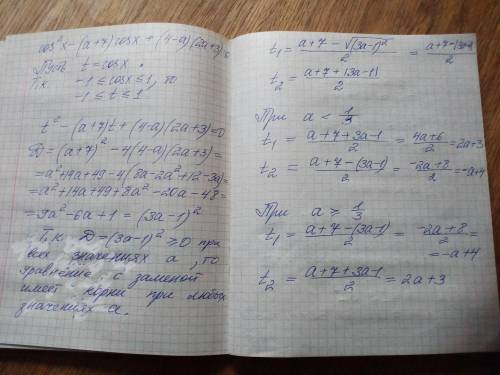 cos²x-(a+7)cosx+(4-a)(2a+3)=0
Пусть t=cosx.
Т.к. -1≤cosx≤1, то
-1≤t≤1
t²-(a+7)t+(4-a)(2a+3)=0
D=(a+7)²-4(4-a)(2a+3)=
=a²+14a+49-4(8a-2a²+12-3a)=
=a²+14a+49+8a²-20a-48=
=9a²-6a+1=(3a-1)²
Т.к. D=(3a-1)²≥0 при
всех значениях a, то
уравнение с заменой
имеет корни при любых
значениях a.
t₁=(a+7-√(3a-1)²)/2=(a+7-|3a-1|)/2
t₂=(a+7+|3a-1|)/2
При a<1/3
t₁=(a+7+3a-1)/2=(4a+6)/2=2a+3
t₂=(a+7-(3a-1))/2=(-2a+8)/2=-a+4
При a≥1/3
t₁=(a+7-(3a-1))/2=(-2a+8)/2=
=-a+4
t₂=(a+7+3a-1)/2=2a+3